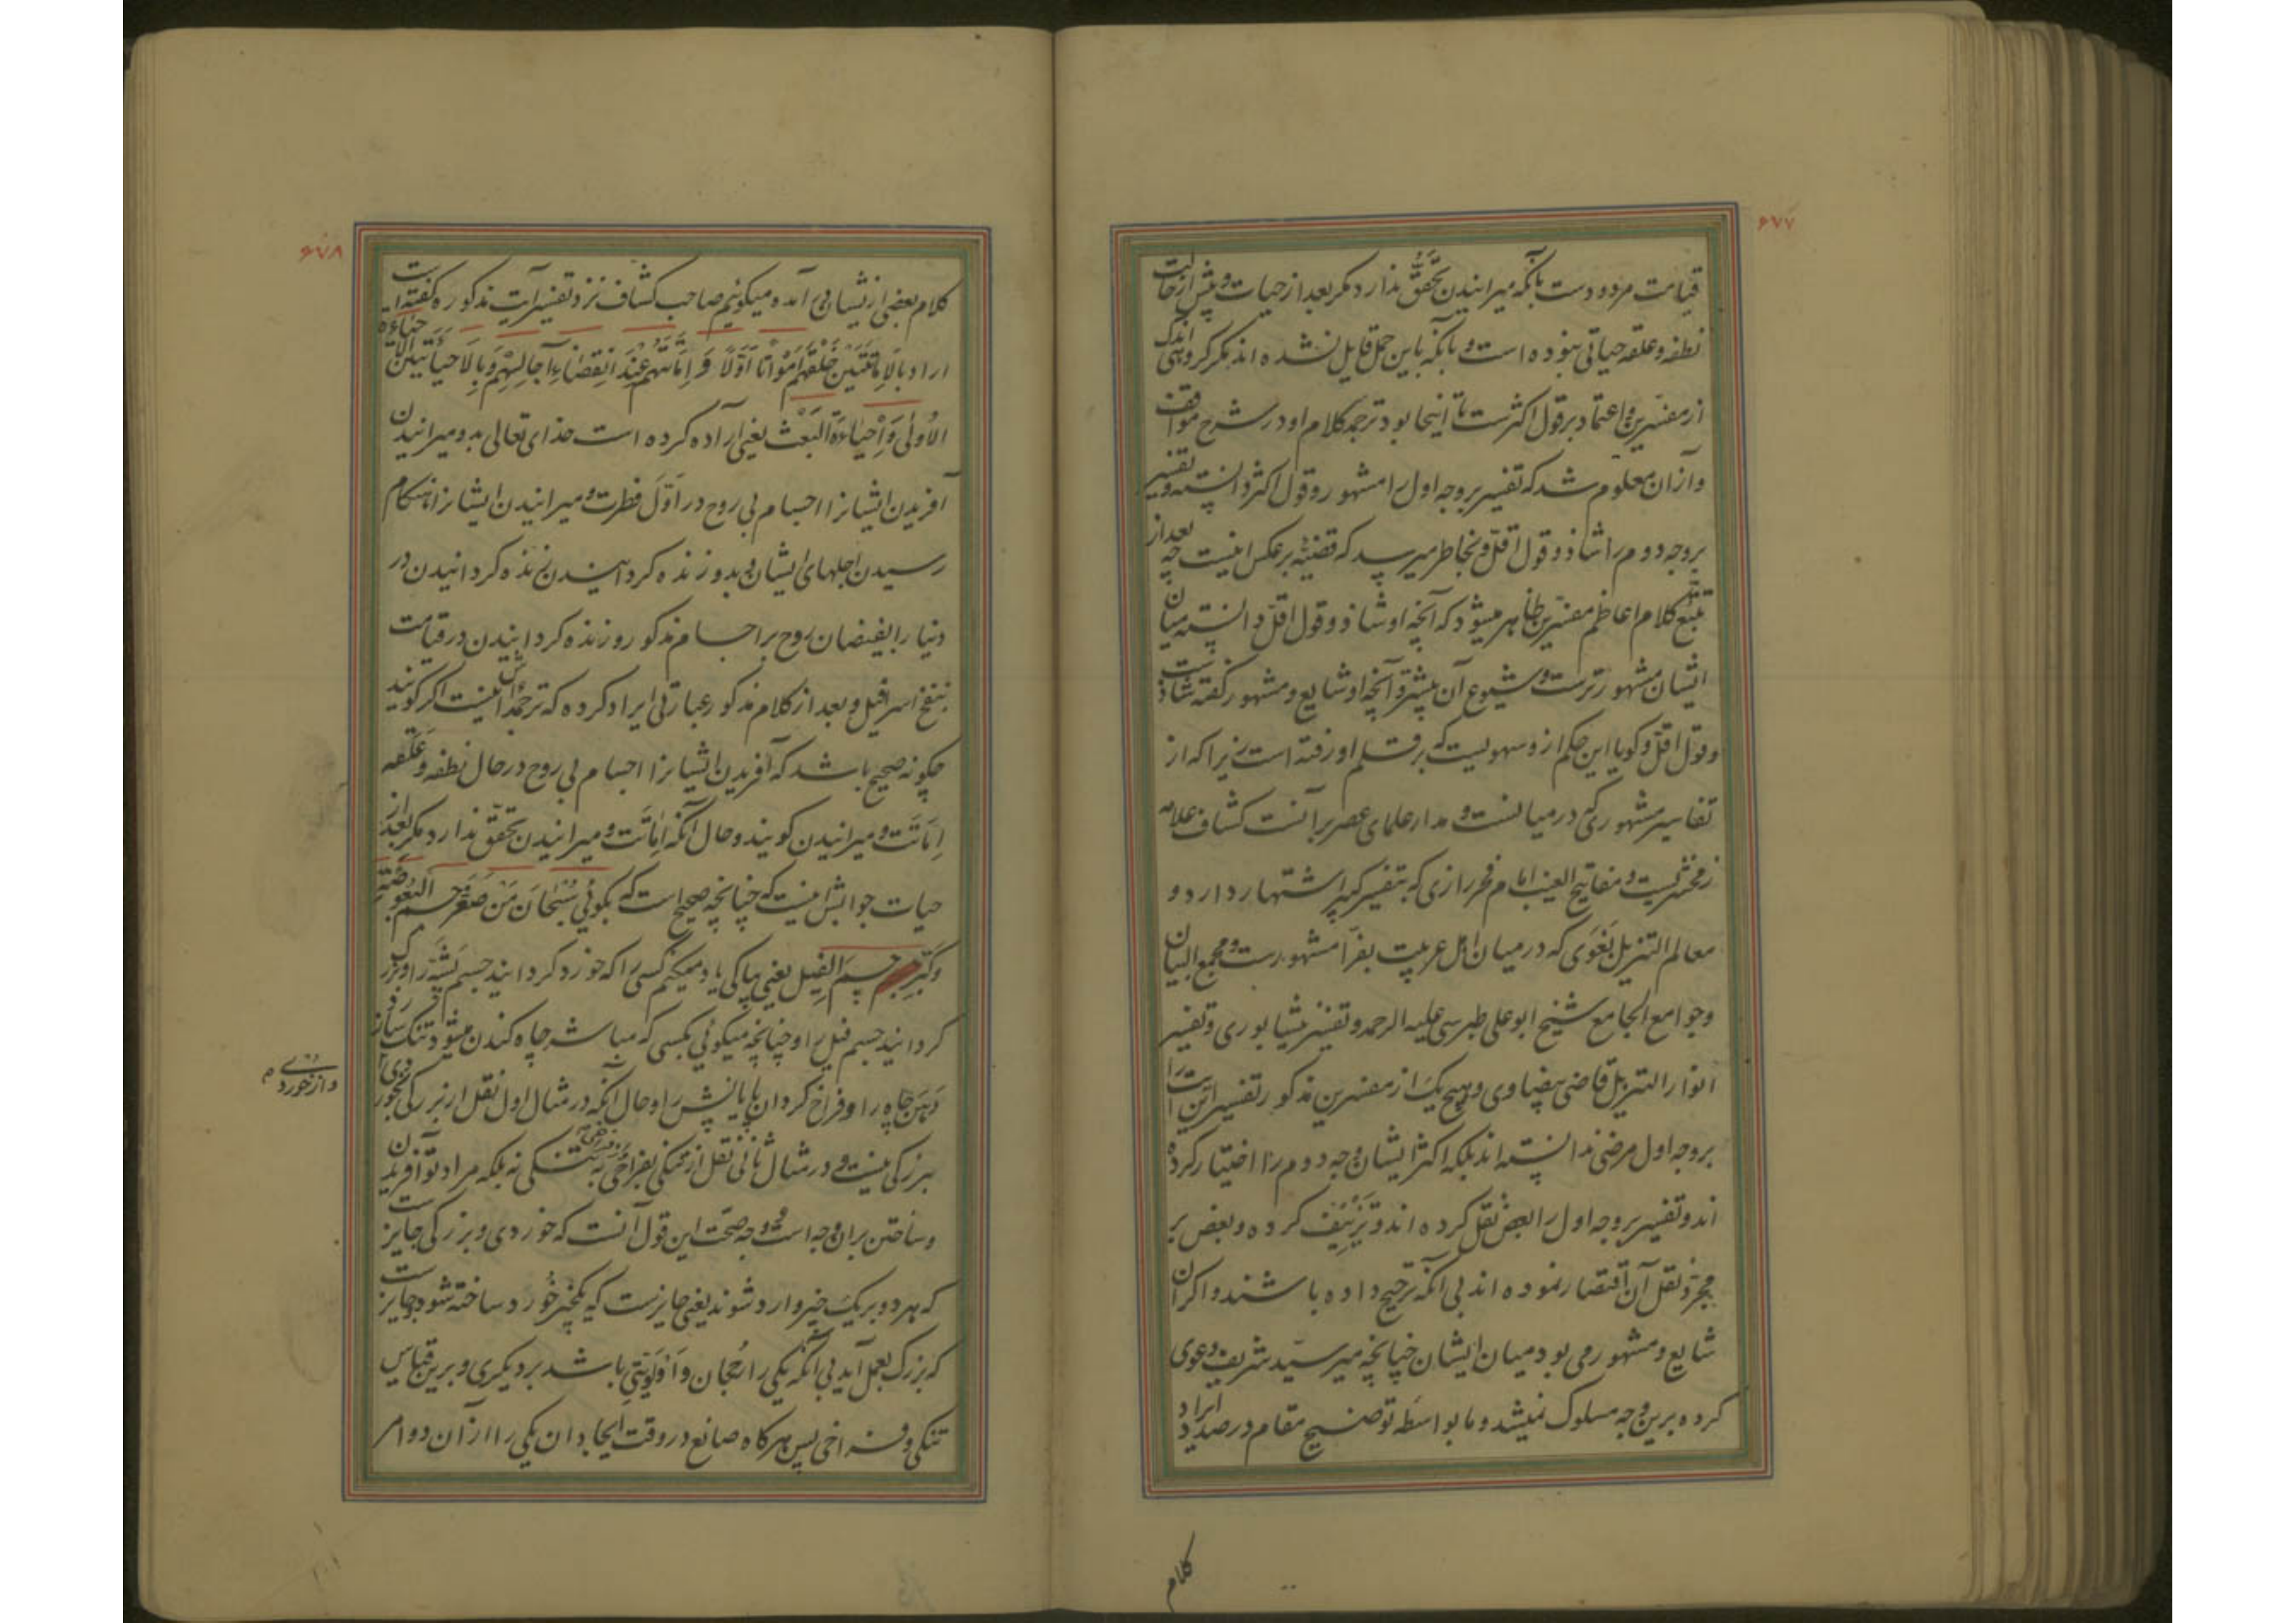 ۶۷۷
قیامت مردودست بآنکه میرانیدن تحقّق ندارد مکر بعد از حیات و پیش از حالت
نطفه و علقه حیاتی نبوده است و بآنکه باین حمل قایل نشده اند مکر کروهی اندک
از مفسّرین و اعتماد بر قول اکثرست تا اینجا بود ترجمهٔ کلام او در شرح مواقف
و ازان معلوم شد که تفسیر بر وجه اول را مشهور و قول اکثر دانسته و تفسیر
بر وجه دوم را شاذ و قول اقلّ و بخاطر میرسد که قضیّه بر عکس اینست چه بعد از
تتبّع کلام اعاظم مفسّرین ظاهر میشود که آنچه او شاذ و قول اقلّ دانسته میان
ایشان مشهورترست و شیوع آن بیشتر و آنچه او شایع و مشهور کفته شاذست
و قول اقلّ و کویا این حکم ازو سهویست که بر قلم او رفته است زیرا که از
تفاسیر مشهور که در میانست و مدار علمای عصر بر آنست کشاف علامه
زمخشریست و مفاتیح الغیب امام فخر رازی که بتفسیر کبیر اشتهار دارد و
معالم التنزیل بَغَوی که در میان اهل عربیت بفرّا مشهورست و مجمع البیان
و جوامع الجامع شیخ ابو علی طبرسی علیه الرحمه و تفسیر نیشابوری و تفسیر
انوار التنزیل قاضی بیضاوی و هیچ یک از مفسرین مذکور تفسیر این آیت را
بر وجه اول مرضی ندانسته اند بلکه اکثر ایشان وجه دوم را اختیار کرده
اند و تفسیر بر وجه اول را بعضی نقل کرده اند و تَزْییف کرده و بعض بر
مجرّد نقل آن اقتصار نموده اند بی آنکه ترجیح داده باشند و اکر آن
شایع و مشهور می بود میان ایشان چنانچه میر سیّد شریف دعوی
کرده برین وجه مسلوک نمیشد و ما بواسطه توضیح مقام در صدد ایراد
کلام
۶۷۸
کلام بعضی از ایشان در آمده میکوئیم صاحب کشاف نزد تفسیر آیت مذکوره کفته است
اراد بالاِماتَتَین خَلْقَهُم اَمْواتًا اَوَّلًا وَ اِماتَتَهُم عِنْدَ انْقِضاءِ آجالِهِمْ وَ بِالاِحیاءَتَینِ الاِحیاءَة
الاُولی وَ اِحیاءَةَ البَعْث یعنی اراده کرده است خدای تعالی بدو میرانیدن
آفریدن ایشانرا اجسام بی روح در اوّل فطرت و میرانیدن ایشانرا هنکام
رسیدن اجلهای ایشان و بدو زنده کردانیدن زنده کردانیدن در
دنیا را بفیضان روح بر اجسام مذکور و زنده کردانیدن در قیامت
بنفخ اسرافیل و بعد از کلام مذکور عبارتی ایراد کرده که ترجمه اش اینست اکر کویند
چکونه صحیح باشد که آفریدن ایشانرا اجسام بی روح در حال نطفه و علقه
اِماتَت و میرانیدن کویند و حال آنکه اِماتَت و میرانیدن تحقّق ندارد مکر بعد از
حیات جوابش اینست که چنانچه صحیح است که بکوئی سُبْحانَ مَنْ صَغَّرَ جسم البَعُوضَةِ
وَ کَبَّرَ جسمَ الفیل یعنی بپاکی یاد میکنم کسی را که خورد کردانید جسم پشّه را و بزرک
کردانید جسم فیل را و چنانچه میکوئی بکسی که مباشر چاه کندن میشود تنک ساز
دَهَن چاه را و فراخ کردان پایانش را و حال آنکه در مثال اول نقل از بزرکی بخوردی و از خوردی
ببزرکی نیست و در مثال ثانی نقل از تنکی بفراخی و از فراخی به تنکی نه بلکه مراد تو آفریدن
و ساختن بران وجه است و وجه صحّت این قول آنست که خوردی و بزرکی جایزست
که هر دو بر یک چیز وارد شوند یعنی جایزست که یکچیز خورد ساخته شود و جایزست
که بزرک بعمل آید بی آنکه یکی را رُجحان و اَولَوِیّتی باشد بر دیکری و برین قیاس
تنکی و فراخی پس هر کاه صانع در وقت ایجاد ان یکی را از آن دو امر